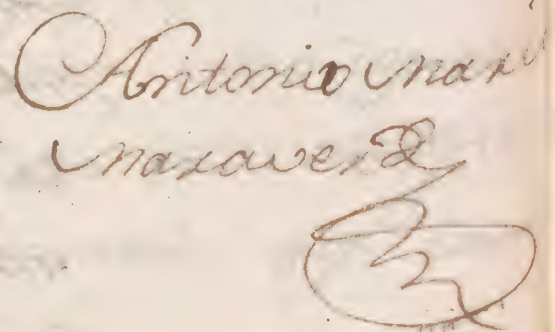 Antonio Mari
Maraver